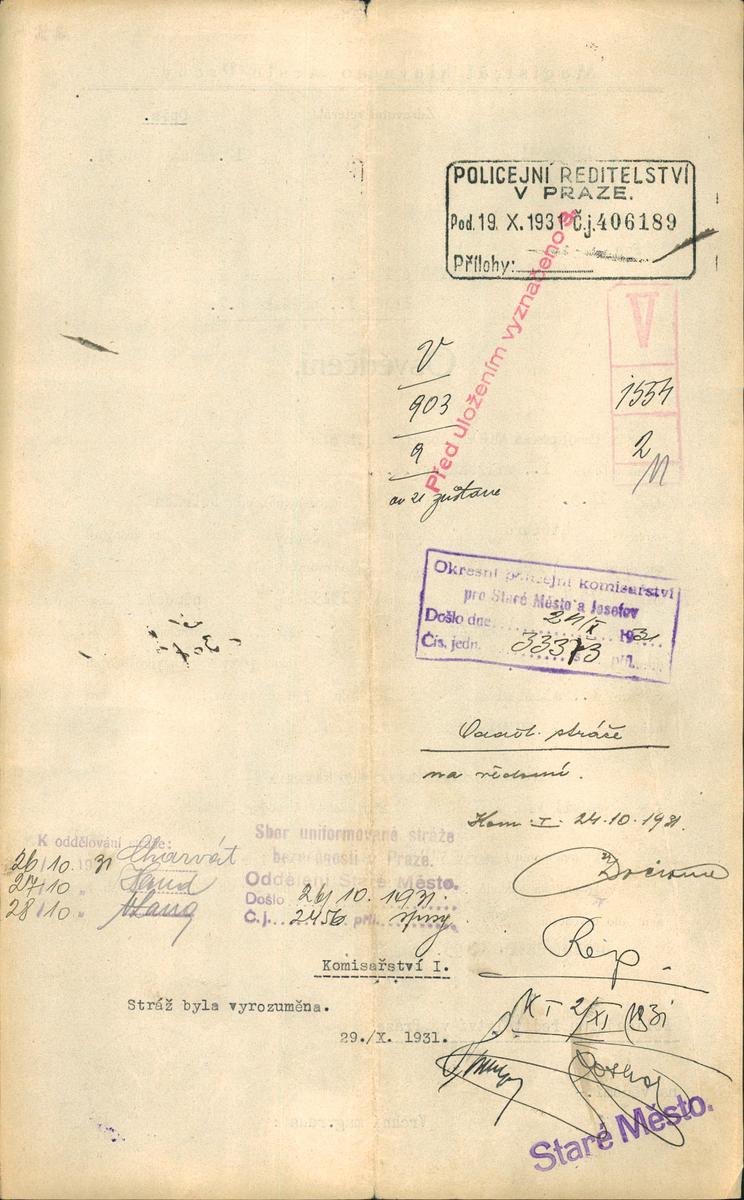 POLICEJNÍ ŘEDITELSTVÍ
V PRAZE.
Pod. 19. X. 1931 Č.j. 406189
Přílohy:
Před uložením vyznačeno
V
V
903
1554
9
2
zůstane
Okresní policejní komisařství
pro Staré Město a Josefov
Došlo dne 21/X 1931
Čís. jedn. 33373 příl.
stráže
na vědomí.
Kom I. 24.10.1931.
K oddělování stráže:
26/10. 1931 Charvát
27/10 "
28/10 "
Sbor uniformované stráže
bezpečnosti v Praze.
Oddělení Staré Město.
Došlo 26/10.1931.
Č.j. 2456 příl. spisy
Rep.
Komisařství I.
Stráž byla vyrozuměna.
29./X. 1931.
K I 2/XI 1931
Staré Město.